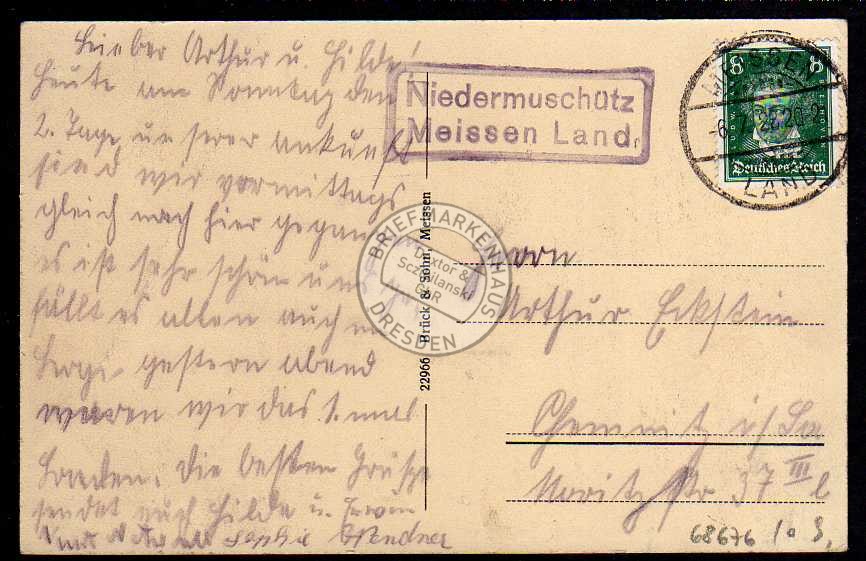 Lieber Arthur u. Hilde!
Heute am Sonntag den
2. Tage unserer ankunft
sind wir vormittags
gleich nach hier gegan
es ist sehr schön und
fällt es allen auch
gestern abend
waren wir das 1. mal
baden. Die besten Grüße
sendet euch Hilde u. Erwin
Sophie
Niedermuschütz
Meissen Land.
MEISSEN
-6.7.28.20-2
LAND
8 8
Deutsches Reich
22966 Brück & Sohn, Meissen
BRIEFMARKENHAUS
DRESDEN
Herrn
Arthur Eckstein
Chemnitz i/Sa
Moritzstr 37 III l
68676